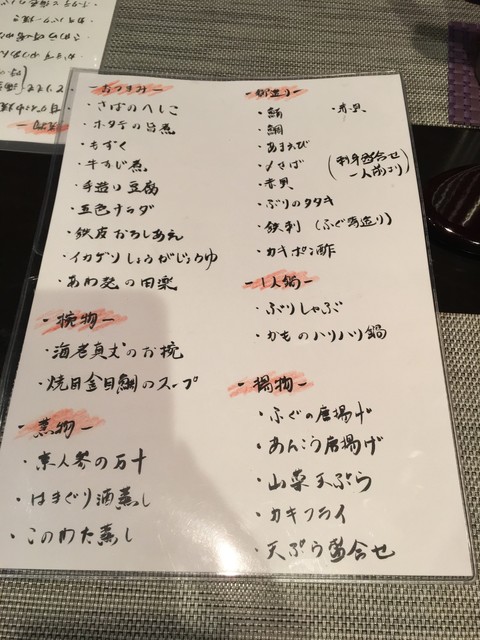 -おつまみ-
・さばのへしこ
・ホタテの旨煮
・もずく
・牛すじ煮
・手造り豆腐
・五色サラダ
・鉄皮おろしあえ
・イカゲソしょうがじょうゆ
・あわ麩の田楽
-椀物-
・海老真丈のお椀
・焼目金目鯛のスープ
-蒸物-
・京人参の万十
・はまぐり酒蒸し
・このわた蒸し
-御造り-
・鮪
・赤貝
・鯛
・あまえび
・〆さば
(刺身盛合せ
一人前より)
・赤貝
・ぶりのタタキ
・鉄刺 (ふぐ薄造り)
・カキポン酢
-1人鍋-
・ぶりしゃぶ
・かものハリハリ鍋
-揚物-
・ふぐの唐揚げ
・あんこう唐揚げ
・山菜天ぷら
・カキフライ
・天ぷら盛合せ